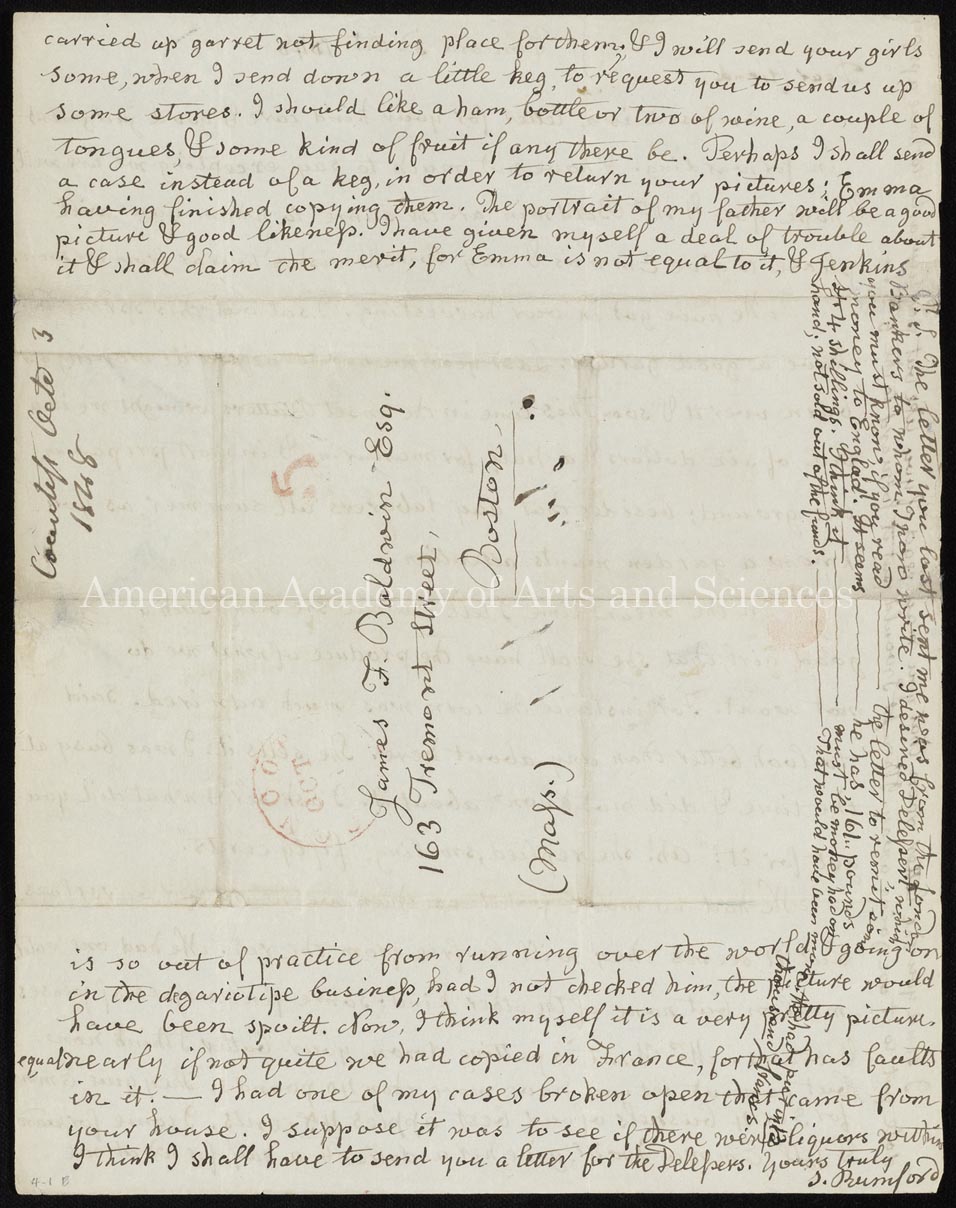 carried up garret not finding place for them; & I will send your girls
some, when I send down a little keg, to request you to send us up
some stores. I should like a ham, bottle or two of wine, a couple of
tongues, & some kind of fruit if any there be. Perhaps I shall send
a case instead of a keg, in order to return your pictures; Emma
having finished copying them. The portrait of my father will be a good
picture & good likeness. I have given myself a deal of trouble about
it & shall claim the merit, for Emma is not equal to it, & Jenkins
is so out of practice from running over the world, & going on
in the degariotipe business, had I not checked him, the picture would
have been spoilt. Now, I think myself it is a very pretty picture.
equal nearly if not quite we had copied in France, for that has faults
in it. — I had one of my cases broken open that came from
your house. I suppose it was to see if there were liquors within
I think I shall have to send you a letter for the Delesers. Yours truly
S. Rumford
P.S. The letter you last sent me was from the London
Bankers to whom I now write. I desired Delesert,
you must know, if you read the letter to remit some
money to Englad. It seems he has, 161.. pounds
& 4 shillings. I think it must be money had on
hand; not sold out of the funds. That would have been more. He had per
thousand francs
James F. Baldwin Esq.
163 Tremont Street,
Boston,
(Mass.)
5
OCT
Countess Octo 3
1848
4-1 B
American Academy of Arts and Sciences